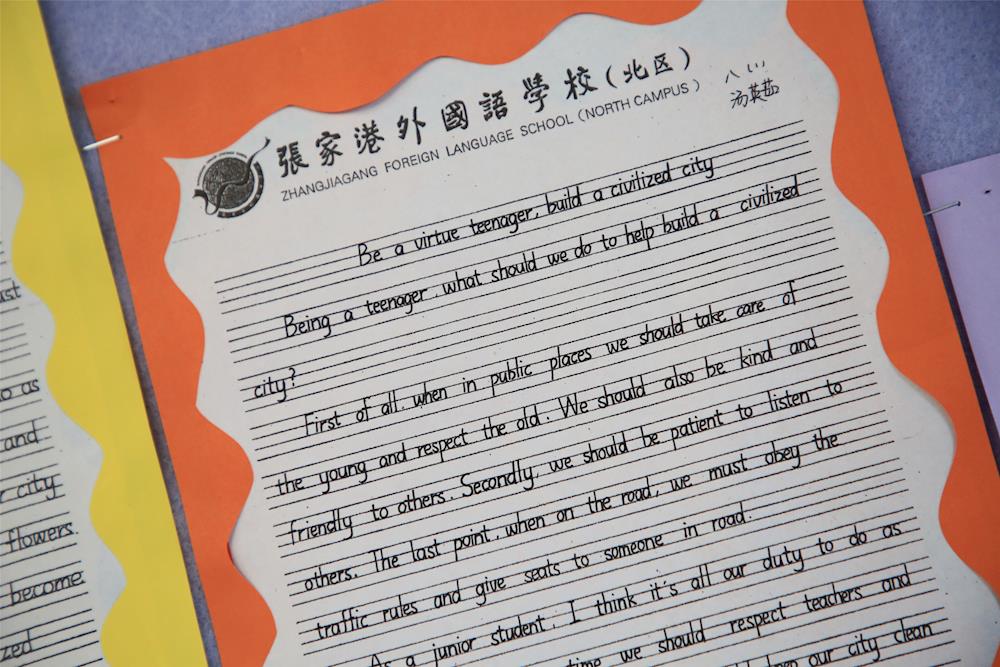 張家港外國語學校(北区)
ZHANGJIAGANG FOREIGN LANGUAGE SCHOOL (NORTH CAMPUS)
Be a virtue teenager, build a civilized city
Being a teenager, what should we do to help build a civilized
city?
First of all, when in public places we should take care of
the young and respect the old. We should also be kind and
friendly to others. Secondly, we should be patient to listen to
others. The last point, when on the road, we must obey the
traffic rules and give seats to someone in road.
As a junior student, I think it's all our duty to do as
time we should respect teachers and
our city clean
ust
o as
and
r city
flowers.
become
zed